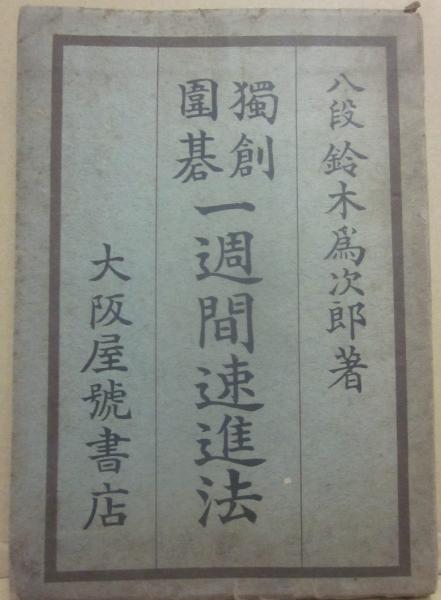 八段鈴木爲次郎著
獨創
圍碁
一週間速進法
大阪屋號書店